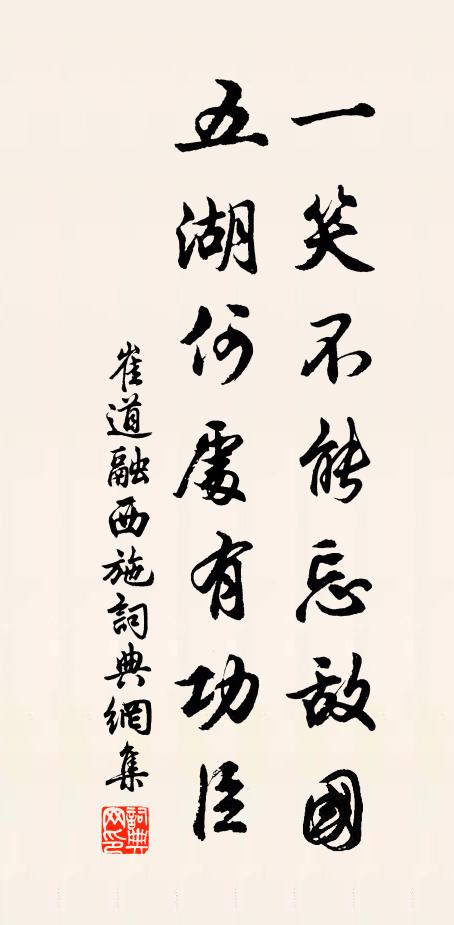 一笑不能忘敵國
五湖何處有功臣
崔道融西施詞典網集
詞典網印